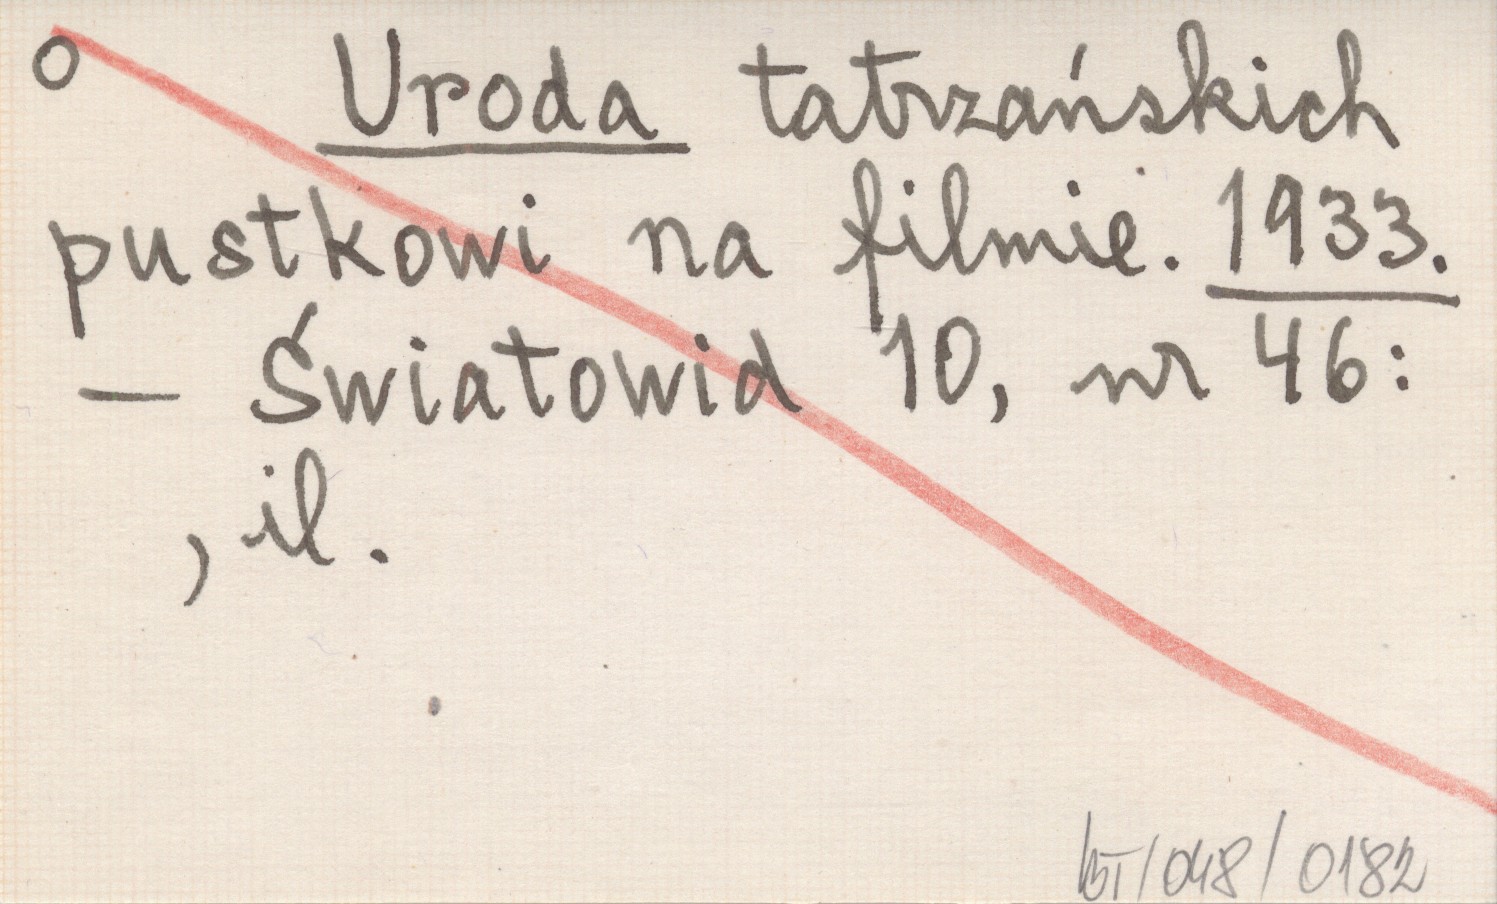 o Uroda tatrzańskich
pustkowi na filmie. 1933.
— Światowid 10, nr 46:
, il.
/048/0182